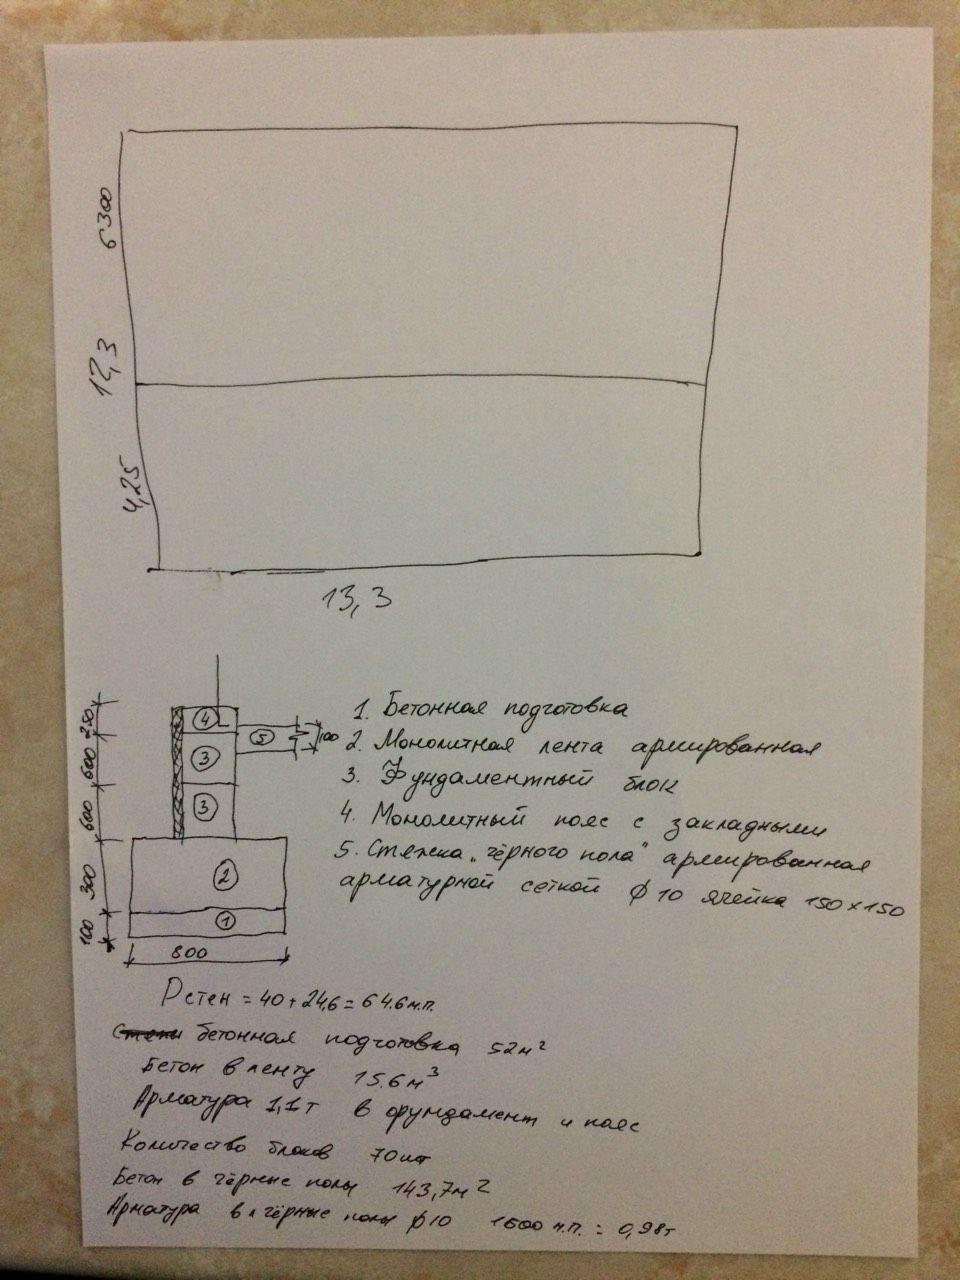 6300
12,3
4,25
13,3
250
600
600
300
100
4
5
100
3
3
2
1
800
1. Бетонная подготовка
2. Монолитная лента армированная
3. Фундаментный блок
4. Монолитный пояс с закладными
5. Стяжка „чёрного пола" армированная
арматурной сеткой ϕ10 ячейка 150×150
Pстен = 40+24,6 = 64.6м.п.
бетонная подготовка 52м²
Бетон в ленту 15.6м³
Арматура 1,1т в фундамент и пояс
Количество блоков 70шт
Бетон в чёрные полы 143,7м²
Арматура в чёрные полы ϕ10 1600 м.п. = 0,98т